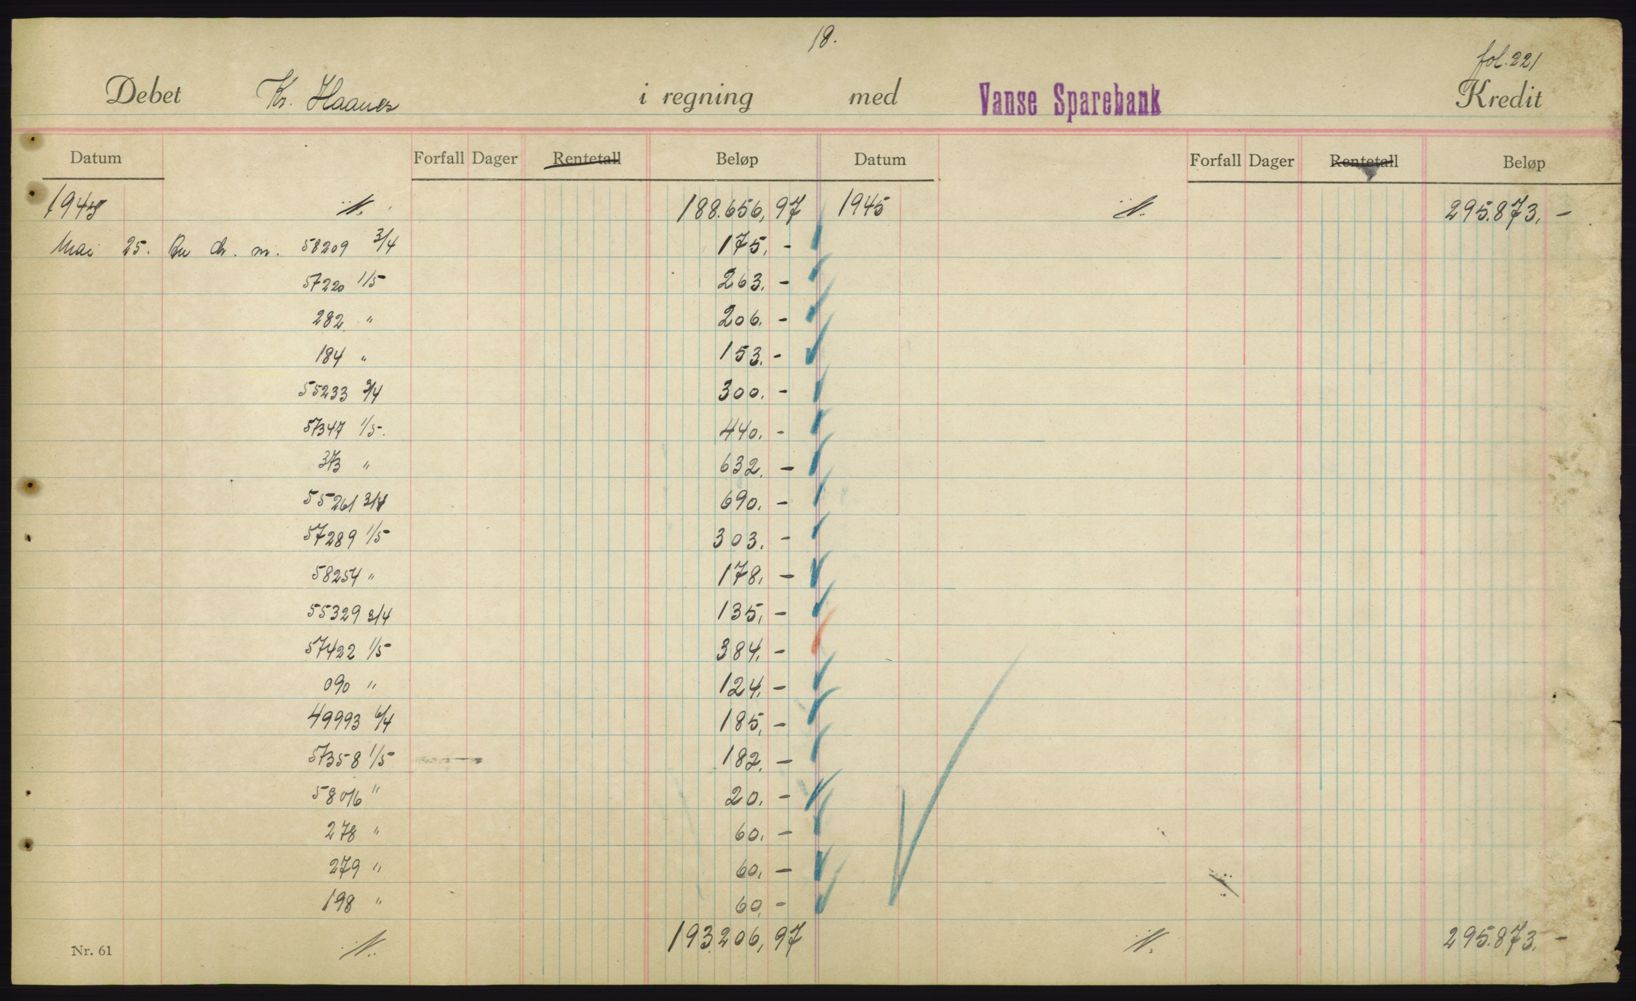 18.
fol. 221
Debet Kr. Haanes i regning med Vanse Sparebank Kredit
Datum Forfall Dager Rentetall Beløp Datum Forfall Dager Rentetall Beløp
1945 188.656,97 1945 295.873,-
Mai 25. m. 58209 3/4 175,-
57220 1/5 263,-
282 " 206,-
184 " 153,-
55233 3/4 300,-
57347 1/5 440,-
373 " 632,-
55261 3/4 690,-
57289 1/5 303,-
58254 " 178,-
55329 3/4 135,-
57422 1/5 384,-
090 " 124,-
49993 6/4 185,-
57358 1/5 182,-
58016 " 20,-
278 " 60,-
279 " 60,-
198 " 60,-
Nr. 61 193.206,97 295.873,-